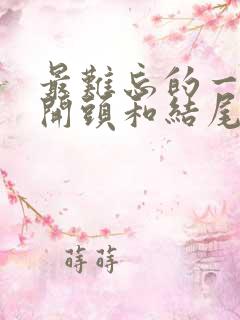 最難忘的一
開頭和結尾
蒔蒔